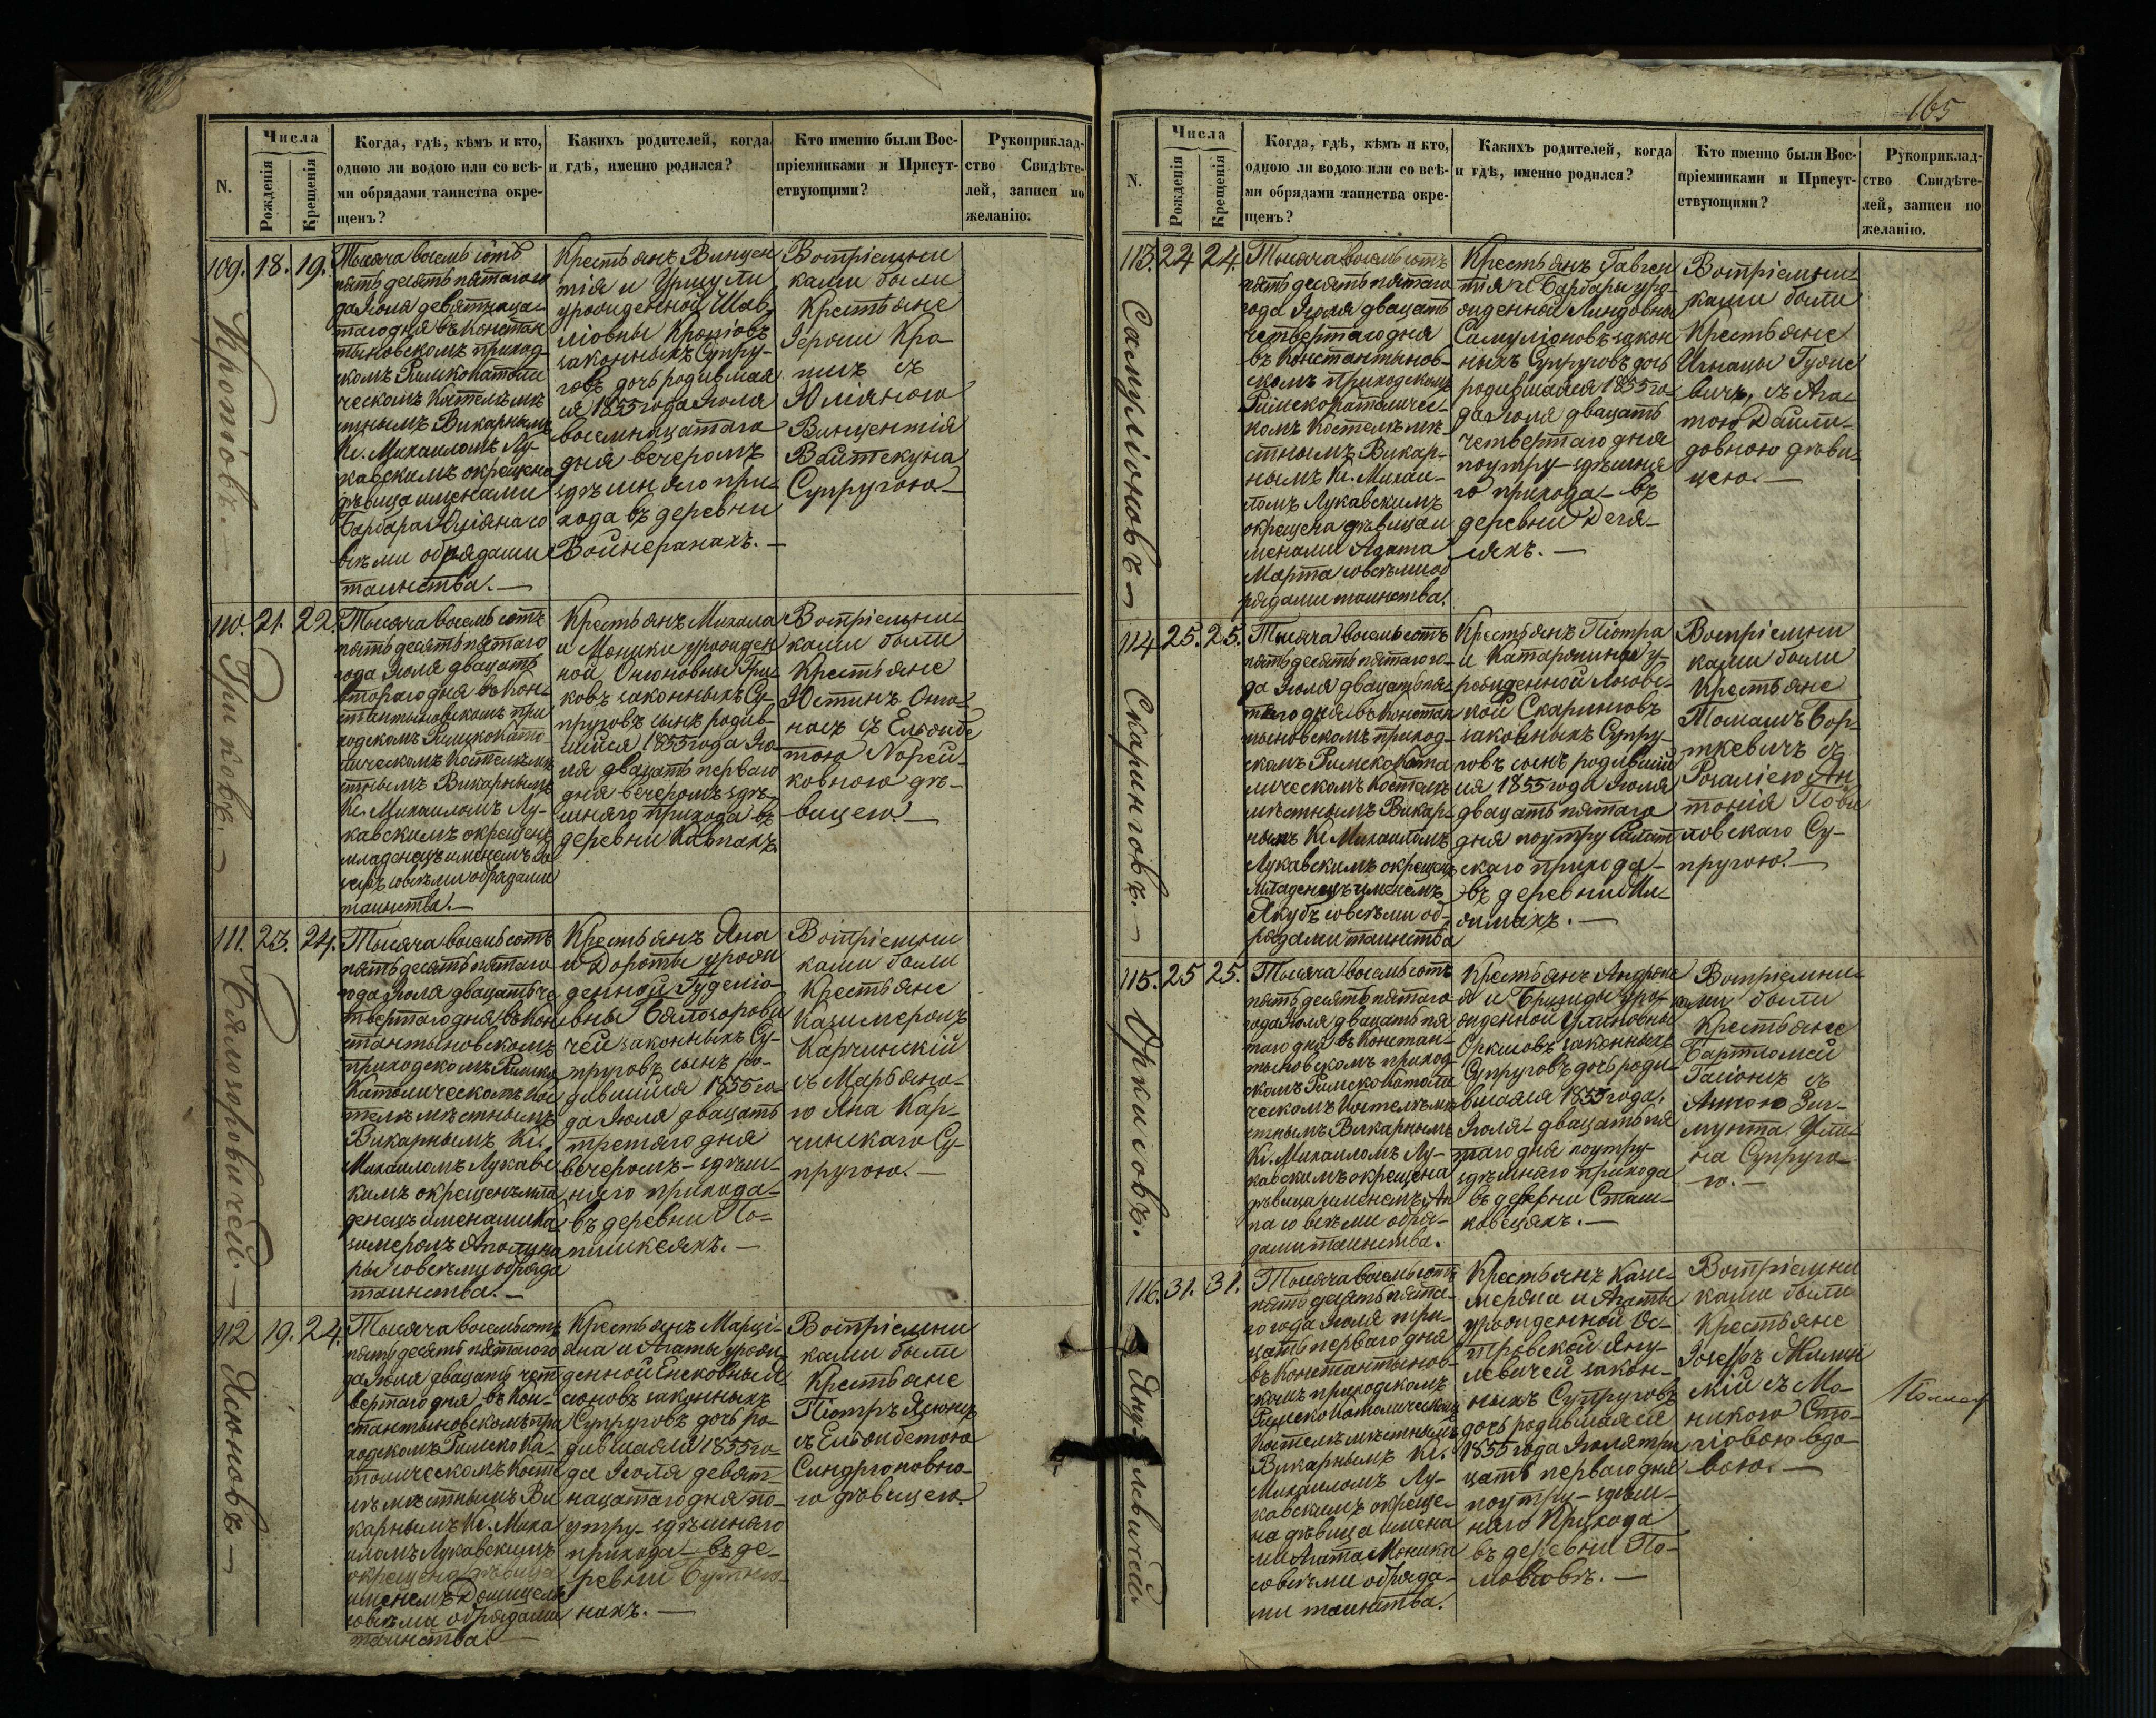 Числа
N.
Рожденія
Крещенія
Когда, гдѣ, кѣмъ и кто,
одною ли водою или со всѣ-
ми обрядами таинства окре-
щенъ?
Какихъ родителей, когда
и гдѣ, именно родился?
Кто именно были Вос-
пріемниками и Присут-
ствующими?
Рукоприклад-
ство Свидѣте-
лей, записи по
желанію.
109. 18. 19.
Кротовъ.
Тысяча восемь сотъ
пять десятъ пятаго го
да Іюля девятнаца-
таго дня въ Констан
тыновскомъ приход-
скомъ Римско Католи
ческомъ Костелѣ мѣ
стнымъ Викарнымъ
Кс. Михаиломъ Лу-
кавскимъ окрещена
дѣвица именами
Барбара Юліяна со
всѣми обрядами
таинства.
Крестьянъ Винцен
тія и Уршули
урожденной Шав
ловны
законныхъ Супру-
говъ дочь родившая
ся 1855 года Іюля
восемнацатаго
дня вечеромъ
здѣшняго при-
хода въ деревни
Войнеранахъ.
Вотпріемни
ками были
Крестьяне
съ
Юліяною
Винцентія
Вайтекуна
Супругою.
110. 21. 22.
Гриковъ.
Тысяча восемь сотъ
пять десятъ пятаго
года Іюля двацать
втораго дня въ Кон-
стантыновскомъ при
ходскомъ Римско Като
лическомъ Костелѣ мѣ
стнымъ Викарнымъ
Кс. Михаиломъ Лу-
кавскимъ окрещенъ
младенецъ именемъ
со всѣми обрядами
таинства.
Крестьянъ Михала
и Моники урожден
ной Гри-
ковъ законныхъ Су-
пруговъ сынъ родив-
шійся 1855 года Ію
ля двацать перваго
дня вечеромъ здѣ-
шняго прихода въ
деревни
Вотпріемни-
ками были
Крестьяне
Юстинъ
съ Ельжбе
тою Норей-
ковною дѣ-
вицею
111. 23. 24.
Бялозоровичей.
Тысяча восемь сотъ
пять десятъ пятаго
года Іюля двацать че
твертаго дня въ Кон
стантыновскомъ
приходскомъ Римско
Католическомъ Кос
телѣ мѣстнымъ
Викарнымъ Кс.
Михаиломъ Лукавс
кимъ окрещенъ мла
денецъ именами Ка
зимеромъ
со всѣми обряда
таинства.
Крестьянъ Яна
и Дороты урож
денной
вны Бялозорови
чей законныхъ Су-
пруговъ сынъ ро-
дившійся 1855 го
да Іюля двацать
третяго дня
вечеромъ - здѣш-
няго прихода
въ деревни
Вотпріемни
ками были
Крестьяне
Казимеромъ
Карчинскій
съ Марьяно-
ю Яна Кар-
чинскаго Су-
пругою.
112 19. 24.
Ясюновъ
Тысяча восемь сотъ
пять десятъ пятаго го
да Іюля двацать чет
вертаго дня въ Кон-
стантыновскомъ при
ходскомъ Римско Ка-
толическомъ Косте
лѣ мѣстнымъ Ви
карнымъ Кс. Миха
иломъ Лукавскимъ
окрещена дѣвица
именемъ
со всѣми обрядами
таинства.
Крестьянъ Марці-
яна и Агаты урож
денной Я
сюновъ законныхъ
Супруговъ дочь ро-
дившаяся 1855 го-
да Іюля девят-
нацатаго дня по-
утру здѣшняго
прихода въ де-
ревни
нахъ.
Вотпріемни
ками были
Крестьяне
Піотръ Ясюнъ
съ Ельжбетою
ю дѣвицею.
165
Числа
N.
Рожденія
Крещенія
Когда, гдѣ, кѣмъ и кто,
одною ли водою или со всѣ-
ми обрядами таинства окре-
щенъ?
Какихъ родителей, когда
и гдѣ, именно родился?
Кто именно были Вос-
пріемниками и Присут-
ствующими?
Рукоприклад-
ство Свидѣте-
лей, записи по
желанію.
113. 22 24.
Самуліоновъ
Тысяча восемь сотъ
пять десятъ пятаго
года Іюля двацать
четвертаго дня
въ Константынов-
скомъ приходскомъ
Римско католичес-
комъ Костелѣ мѣ-
стнымъ Викар-
нымъ Кс. Михаи-
ломъ Лукавскимъ
окрещена дѣвица и
менами Агата
Марта со всѣми об
рядами таинства.
Крестьянъ Гавген
тія и Барбары уро-
жденной Линдовны
Самуліоновъ закон
ныхъ Супруговъ дочь
родившаяся 1855 го-
да Іюля двацать
четвертаго дня
поутру здѣшня
го прихода въ
деревни Дегя-
сяхъ.
Вотпріемни-
ками были
Крестьяне
Игнацы
вичъ, съ Ага-
тою
довною дѣви
цею.
114. 25. 25.
Скаринговъ.
Тысяча восемь сотъ
пять десятъ пятаго го-
да Іюля двацать пя-
таго дня въ Констан
тыновскомъ приход-
скомъ Римско Като
лическомъ Костелѣ
мѣстнымъ Викар-
нымъ Кс Михаиломъ
Лукавскимъ окрещенъ
младенецъ именемъ
Якубъ со всѣми об-
рядами таинства
Крестьянъ Піотра
и Катаржины у-
рожденной
кой Скаринговъ
законныхъ Супру-
говъ сынъ родивший
ся 1855 года Іюля
двацать пятаго
дня поутру Салат
скаго прихода
въ деревни
Вотпріемни
ками были
Крестьяне
Томашъ Бор-
ткевичъ съ
Розаліею Ан
тонія
ловскаго Су-
пругою.
115. 25 25.
Оркисовъ.
Тысяча восемь сотъ
пять десятъ пятаго
года Іюля двацать пя
таго дня въ Констан-
тыновскомъ приход-
скомъ Римско Католи
ческомъ Костелѣ мѣ
стнымъ Викарнымъ
Кс. Михаиломъ Лу-
кавскимъ окрещена
дѣвица именемъ Ан
на со всѣми обря-
дами таинства.
Крестьянъ Андрже
я и Бригиды уро-
жденной Улиновны
Оркисовъ законныхъ
Супруговъ дочь роди-
вшаяся 1855 года.
Іюля двацать пя
таго дня поутру
здѣшняго прихода
въ деревни Сташ-
ковецяхъ.
Вотпріемни-
ками были
Крестьяне
Бартломей
съ
Анною Зиг-
мунта Ули-
на Супруго-
ю.
116. 31. 31.
Янулевичей.
Тысяча восемь сотъ
пять десятъ пята-
го года Іюля три-
цать перваго дня
въ Константынов-
скомъ приходскомъ
Римско Католическомъ
Костелѣ мѣстнымъ
Викарнымъ Кс.
Михаиломъ Лу-
кавскимъ окреще-
на дѣвица имена
ми Агата Моника
со всѣми обряда-
ми таинства.
Крестьянъ Кази-
мержа и Агаты
урожденной Ос-
тровской Яну-
левичей закон-
ныхъ Супруговъ
дочь родившаяся
1855 года Іюля три
цать перваго дня
поутру здѣш-
няго Прихода
въ деревни
Вотпріемни
ками были
Крестьяне
скій съ Мо-
никою Сто-
вдо-
вою.